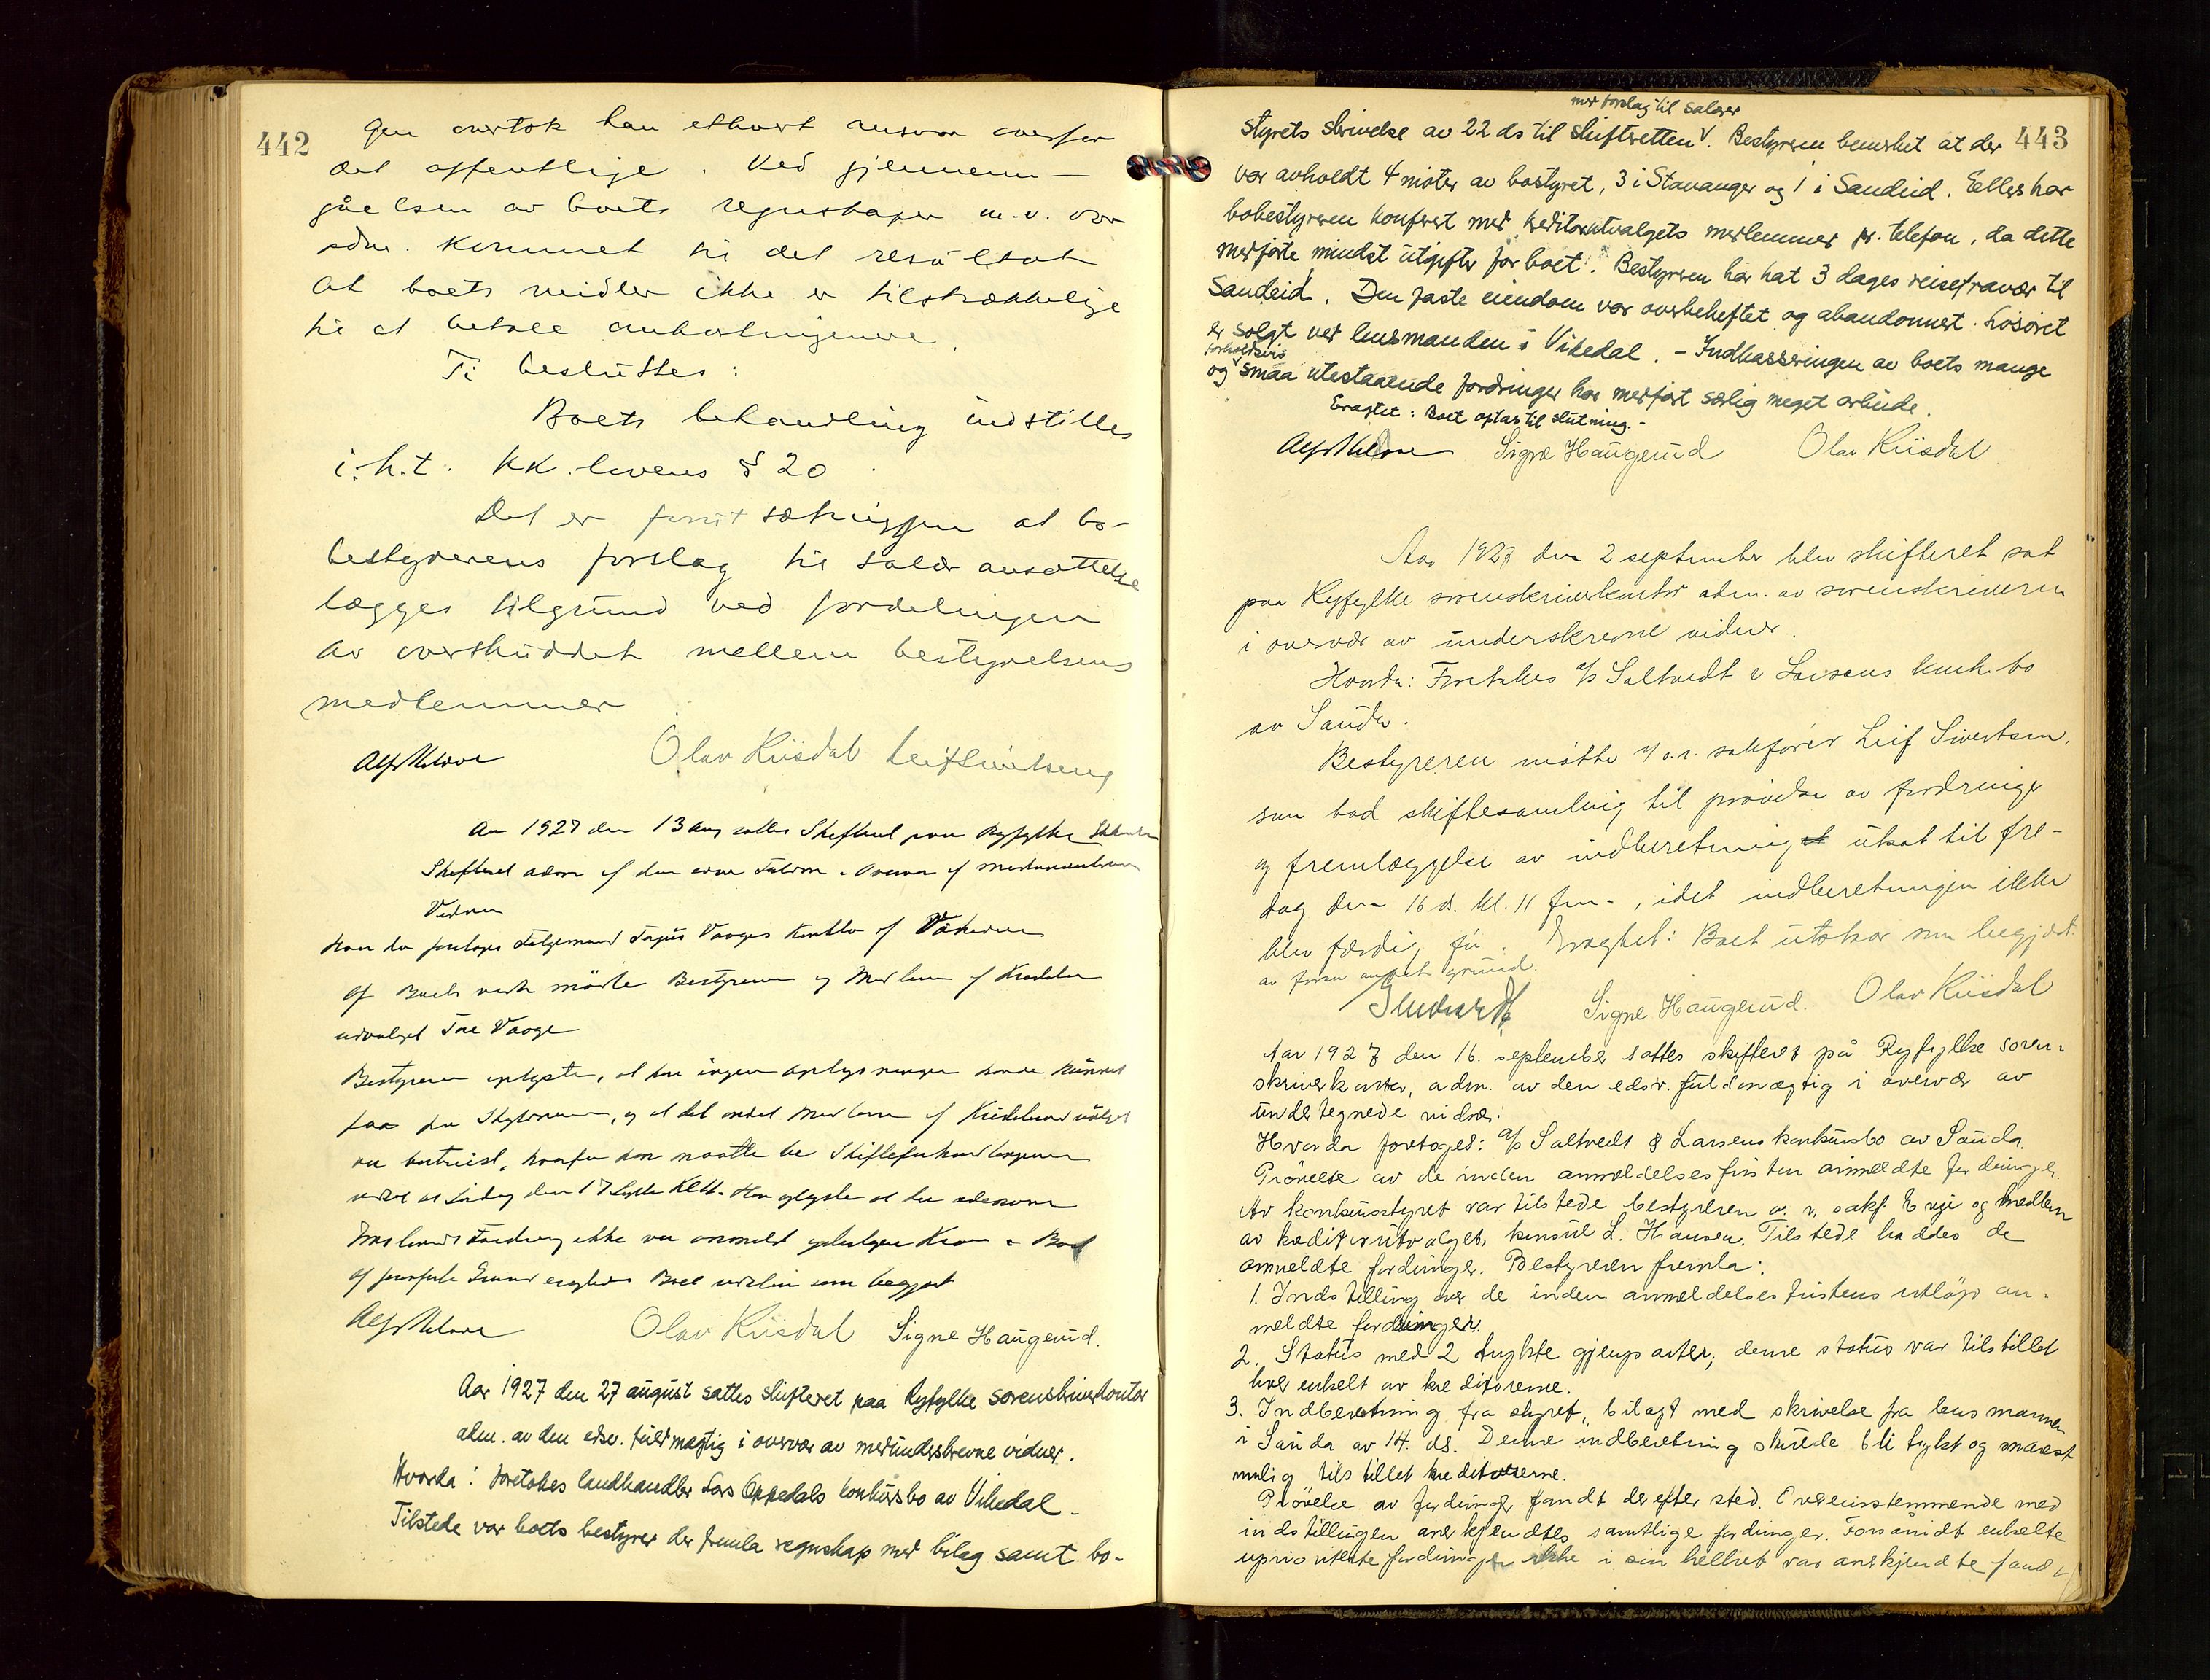 442
gen overtok han ethvert ansvar overfor
det offentlige. Ved gjennem-
gåelsen av boets regnskaper m.v. var
adm. kommet til det resultat
at boets midler ikke er tilstrækkelige
til at betale omkostningerne.
Ti besluttes:
Boets behandling indstilles
i.h.t. KK. lovens § 20.
Det er forutsætningen at bo-
bestyrerens forslag til salær ansættelse
lægges tilgrund ved fordelingen
av overskuddet mellem bestyrelsens
medlemmer
Olav Riisdal Leif Sivertsen
Aar 1927 den 13 aug sattes Skifteret paa Ryfylke
Skifteret adm af den edsv Fuldm i Overvær af medundertegnede
Vidner
Hvor da foretoges Vaages Konkbo af
Af Boets mødte Bestyreren og Medlem af Kreditor
udvalget Tore Vaage
Bestyreren oplyste, at der ingen oplysninger havde kunnet
faaes fra , og at det andet Medlem af Kreditorudvalget
var bortreist, hvorfor han maatte be Skifteforhandlingerne
utsat til Lørdag den 17 Septbr Kl 11. Han oplyste at
Fordring ikke var anmeldt i Boet
Af anførte Grund eragtedes Boet utsat som begjært
Olav Riisdal Signe Haugerud.
Aar 1927 den 27 august sattes skifteret paa Ryfylke sorenskriverkontor
adm. av den edsv. fuldmægtig i overvær av medunderskrevne vidner.
Hvorda: foretokes landhandler Lars Oppedals konkursbo av Vikedal.
Tilstede var boets bestyrer der fremla regnskap med bilag samt bo-
443
med forslag til salærer
styrets skrivelse av 22 ds til skifteretten V. Bestyreren bemerket at der
var avholdt 4 møter av bostyret, 3 i Stavanger og 1 i Sandeid. Ellers har
bobestyreren konferert med kreditorutvalgets medlemmer pr. telefon, da dette
medførte mindst utgifter for boet. Bestyreren har hat 3 dages reisefravær til
Sandeid. Den faste eiendom var overbeheftet og abandonnert. Løsøret
er solgt ved lensmanden i Vikedal. - Indkasseringen av boets mange
forholdsvis
og V smaa utestaaende fordringer har medført særlig meget arbeide.
Eragtet: Boet optas til slutning. -
Signe Haugerud Olav Riisdal
Aar 1927 den 2 september blev skifteret sat
paa Ryfylke sorenskriverkontor adm. av sorenskriveren
i overvær av underskrevne vidner.
Hvorda: Foretokes a/s Saltvedt & Larsens konk. bo
av Sauda.
Bestyreren møtte v/ o.r. sakfører Leif Sivertsen,
som bad skiftesamling til prøvelse av fordringer
og fremlæggelse av indberetning utsat til fre-
dag den 16 ds. kl. 11 fm., idet indberetningen ikke
blev færdig før. Eragtet: Boet utstaar som begjært
av foran anført grund.
Signe Haugerud. Olav Riisdal
Aar 1927 den 16. september sattes skifteret på Ryfylke soren-
skriverkontor, adm. av den edsv. fuldmægtig i overvær av
undertegnede vidner:
Hvorda foretoges: a/s Saltvedt & Larsens konkursbo av Sauda.
Prøvelse av de inden anmeldelsesfristen anmeldte fordringer.
Av konkursstyret var tilstede bestyreren o. r. sakf. Erge og medlem
av kreditorutvalget, konsul L. Hansen. Tilstede haddes de
anmeldte fordringer. Bestyreren fremla:
1. Indstilling over de inden anmeldelsesfristens utløp an-
meldte fordringer.
2. Status med 2 trykte gjenparter; denne status var tilstillet
hver enkelt av kreditorerne.
3. Indberetning fra styret, bilagt med skrivelse fra lensmannen
i Sauda av 14. ds. Denne indberetning skulde bli trykt og snarest
mulig tilstillet kreditorerne.
Prøvelse av fordringer fandt derefter sted. Overensstemmende med
indstillingen anerkjendtes samtlige fordringer. Forsåvidt enkelte
uprioriterte fordringer ikke i sin helhet var anerkjendte fandt